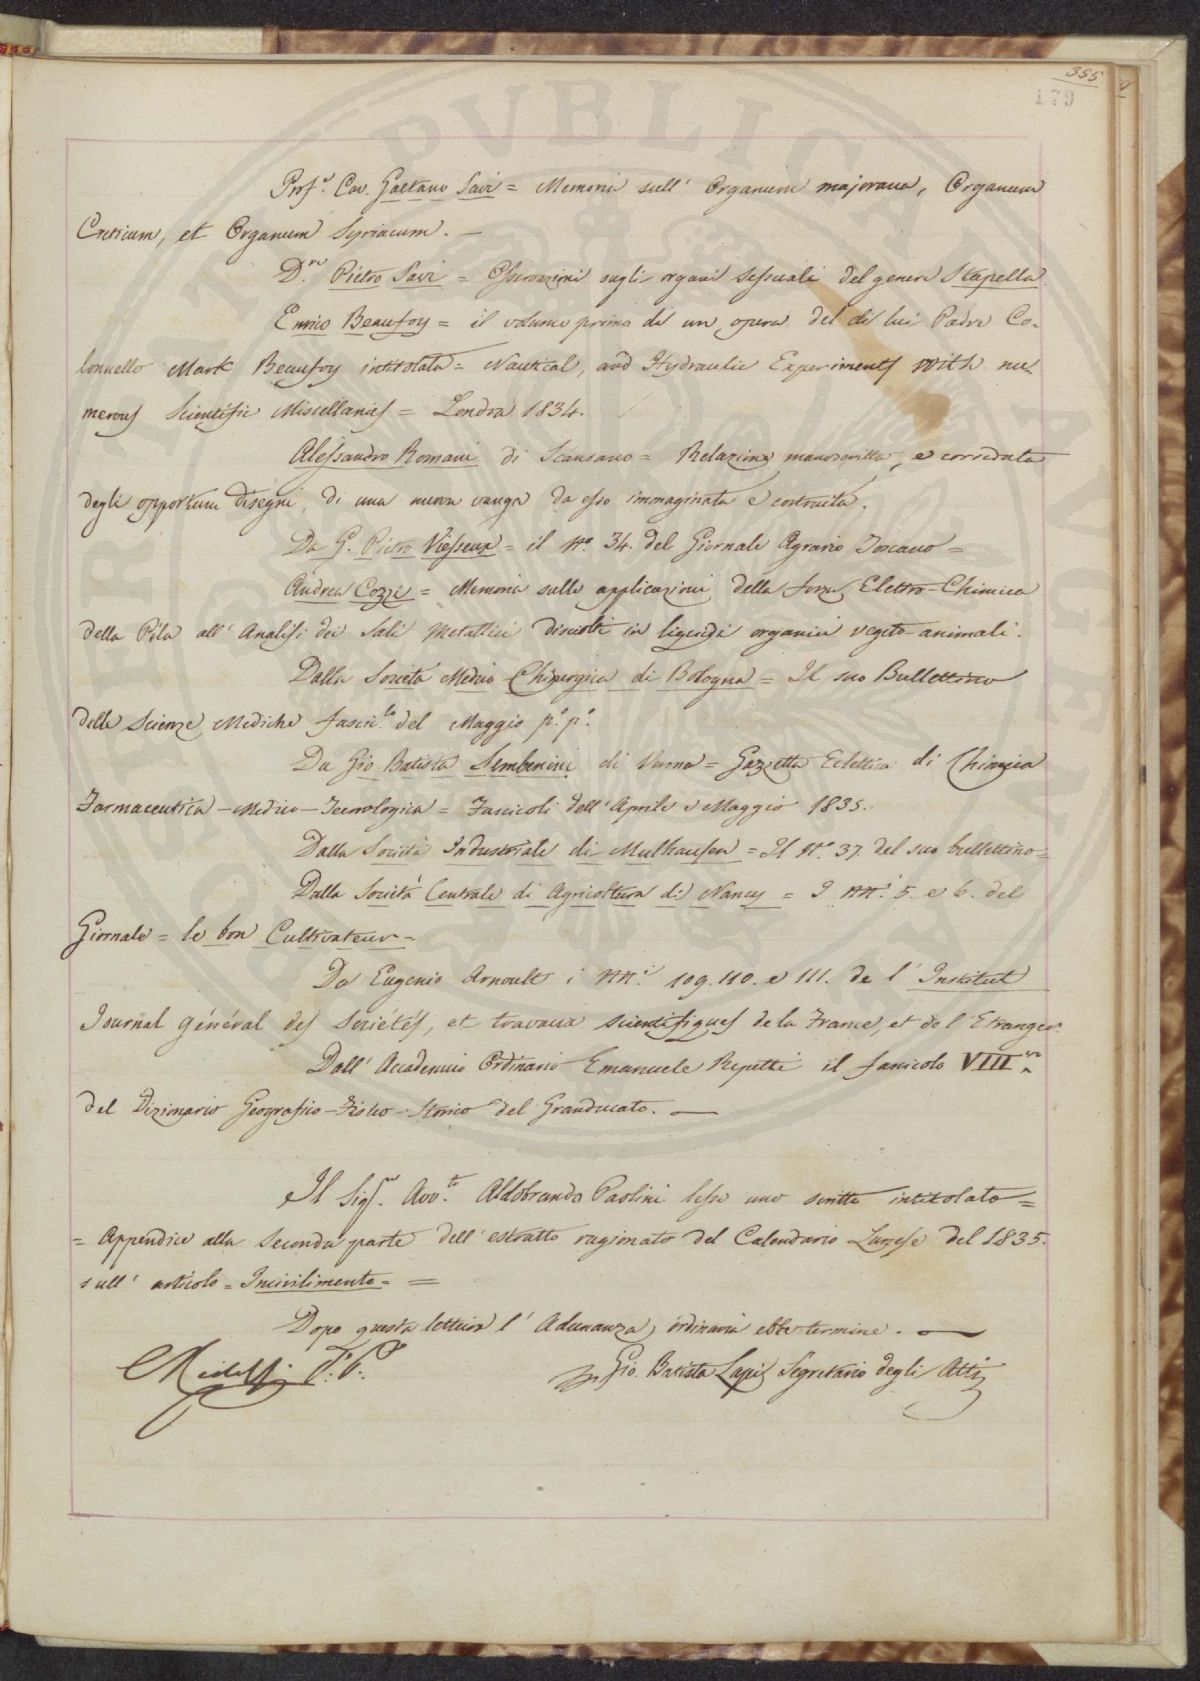 355
179
Prof.r Cav. Gaetano Savi = Memoria sull' Organum majorana, Organum
Creticum, et Organum Syriacum. —
D.re Pietro Savi = Osservazioni sugli organi sessuali del genere Stapella.
Enrico Beaufoy = il volume primo di un opera del di lui Padre Co-
lonnello Mark Beaufoy intitolata = Nautical, and Hydraulic Experiments with nu-
merous Scientific Miscellanies = Londra 1834.
Alessandro Romani di Scansano = Relazione manoscritta, e corredata
degli opportuni disegni, di una nuova vanga da esso immaginata e costruita.
Da G. Pietro Viesseux = il N.o 34. del Giornale Agrario Toscano =
Andrea Cozzi = Memoria sulle applicazioni della forza Elettro-Chimica
della Pila all' Analisi dei Sali Metallici disciolti in liquidi organici vegeto-animali.
Dalla Società Medico Chirurgica di Bologna = Il suo Bullettino
delle Scienze Mediche fascic.lo del Maggio p.o p.o
Da Gio. Batista Sembenini di Verona = Gazzetta Eclettica di Chimica
Farmaceutica – Medico – Tecnologica = Fascicoli dell' Aprile e Maggio 1835.
Dalla Società Industriale di Mulhausen = Il N.o 37. del suo bullettino =
Dalla Società Centrale di Agricoltura di Nancy = I NN.i 5. e 6. del
Giornale = le bon Cultivateur =
Da Eugenio Arnoult i NN.i 109. 110. e 111. de l' Institut
Journal général des Sociétés, et travaux scientifiques de la France, et de l' Etranger.
Dall' Accademico Ordinario Emanuele Repetti il fascicolo VIII
del Dizionario Geografico – Fisico – Storico del Granducato. —
Il Sig.re Avv.to Aldobrando Paolini lesse uno scritto intitolato =
= Appendice alla seconda parte dell' estratto ragionato del Calendario Lunese del 1835.
sull' articolo = Incivilimento = =
Dopo questa lettura l' Adunanza ordinaria ebbe termine. —
Ridolfi
Gio. Batista Lapi Segretario degli Atti